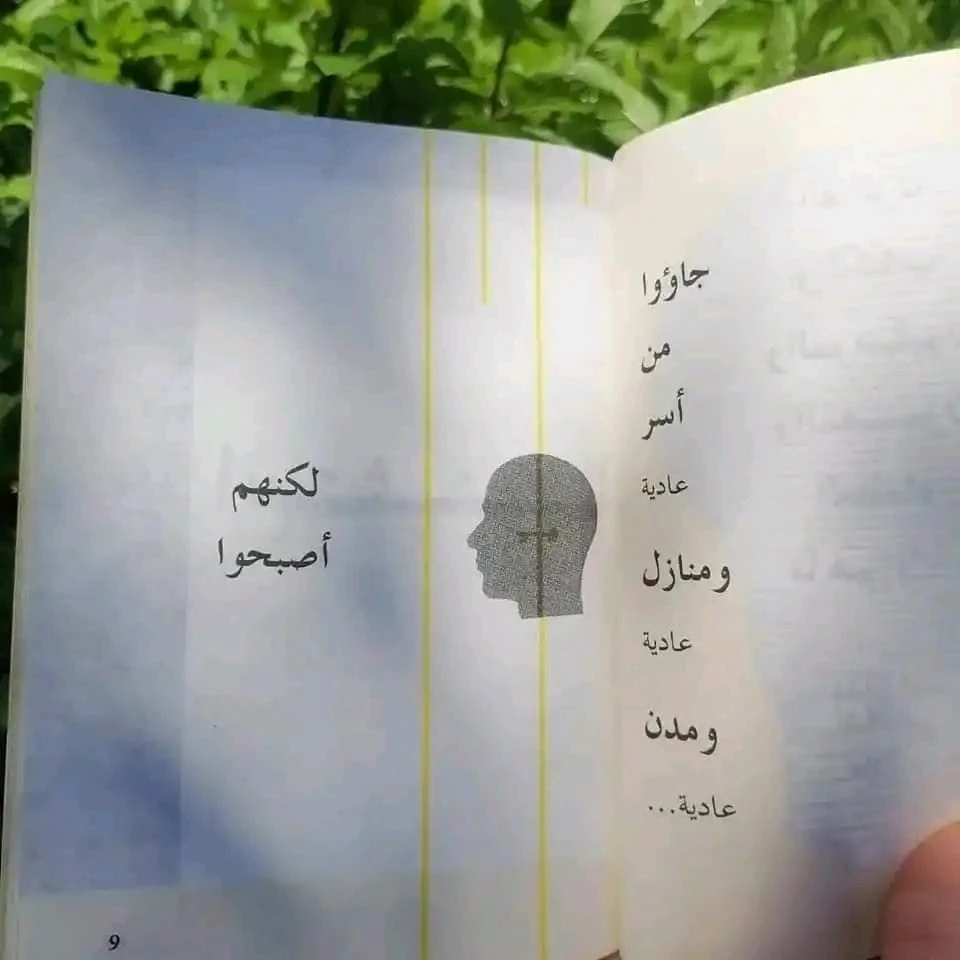 جاوؤوا
من
أسر
عادية
ومنازل
عادية
ومدن
عادية...
لكنهم
أصبحوا
9